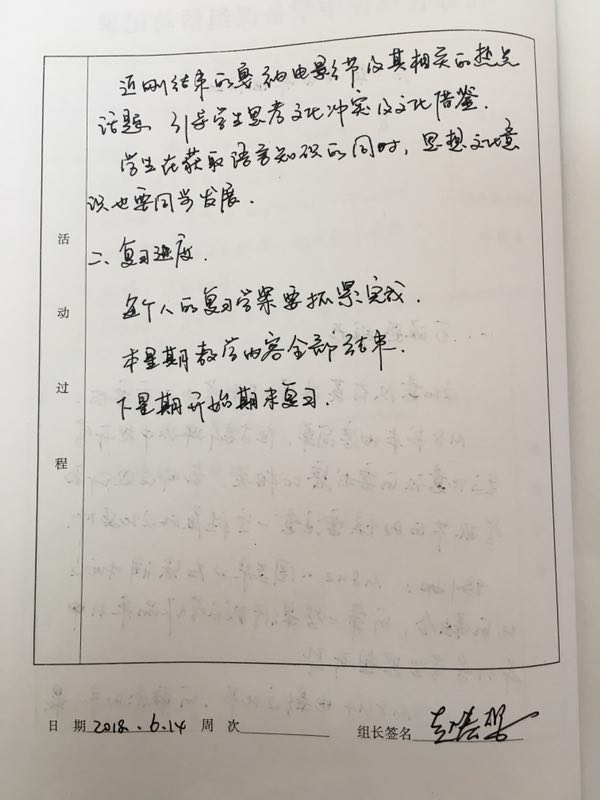 近刚结束的戛纳电影节及其相关的热点
话题 引导学生思考文化冲突及文化借鉴.
学生在获取语言知识的同时, 思想文化意
识也要同步发展.
二、复习进度.
每个人的复习学案要抓紧完成.
本星期教学内容全部结束.
下星期开始期末复习.
活动过程
日 期 2018.6.14 周 次 组长签名